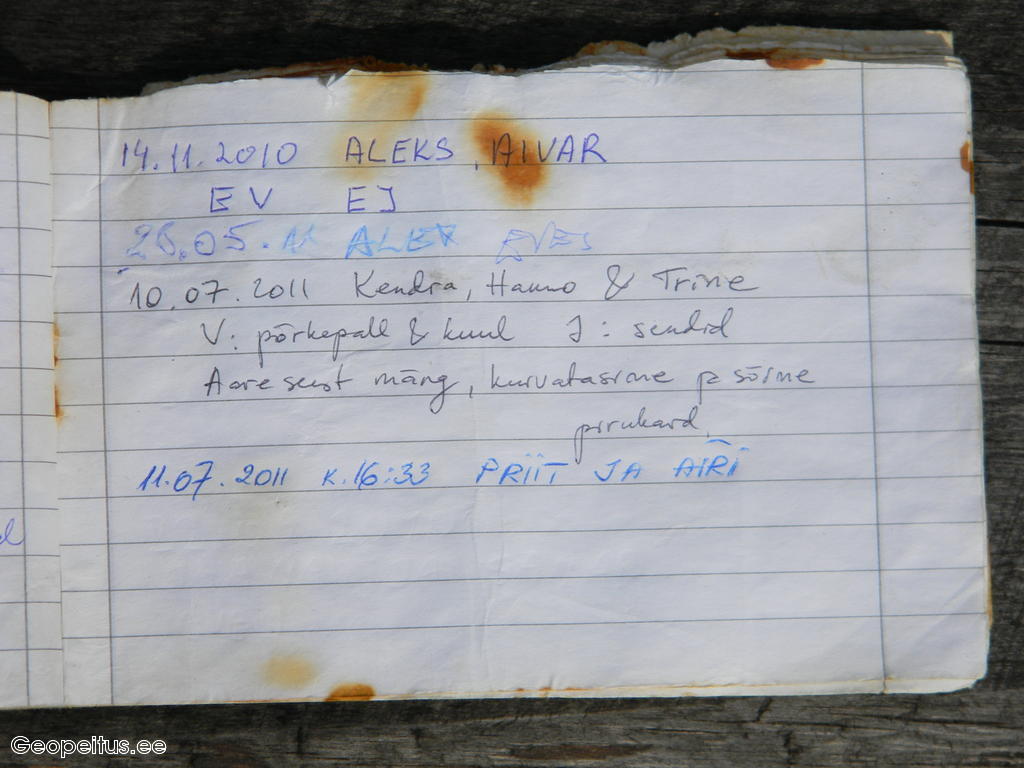 14.11.2010 ALEKS, AIVAR
EV EJ
28.05.11 ALEX
10.07.2011 Kendra, Hanno & Triine
V: põrkepall & kuul J: sendid
Aare seest mäng, kuivatasime ja sõime
pirukaid.
11.07.2011 K.16:33 PRIIT JA AIRI
Geopeitus.ee